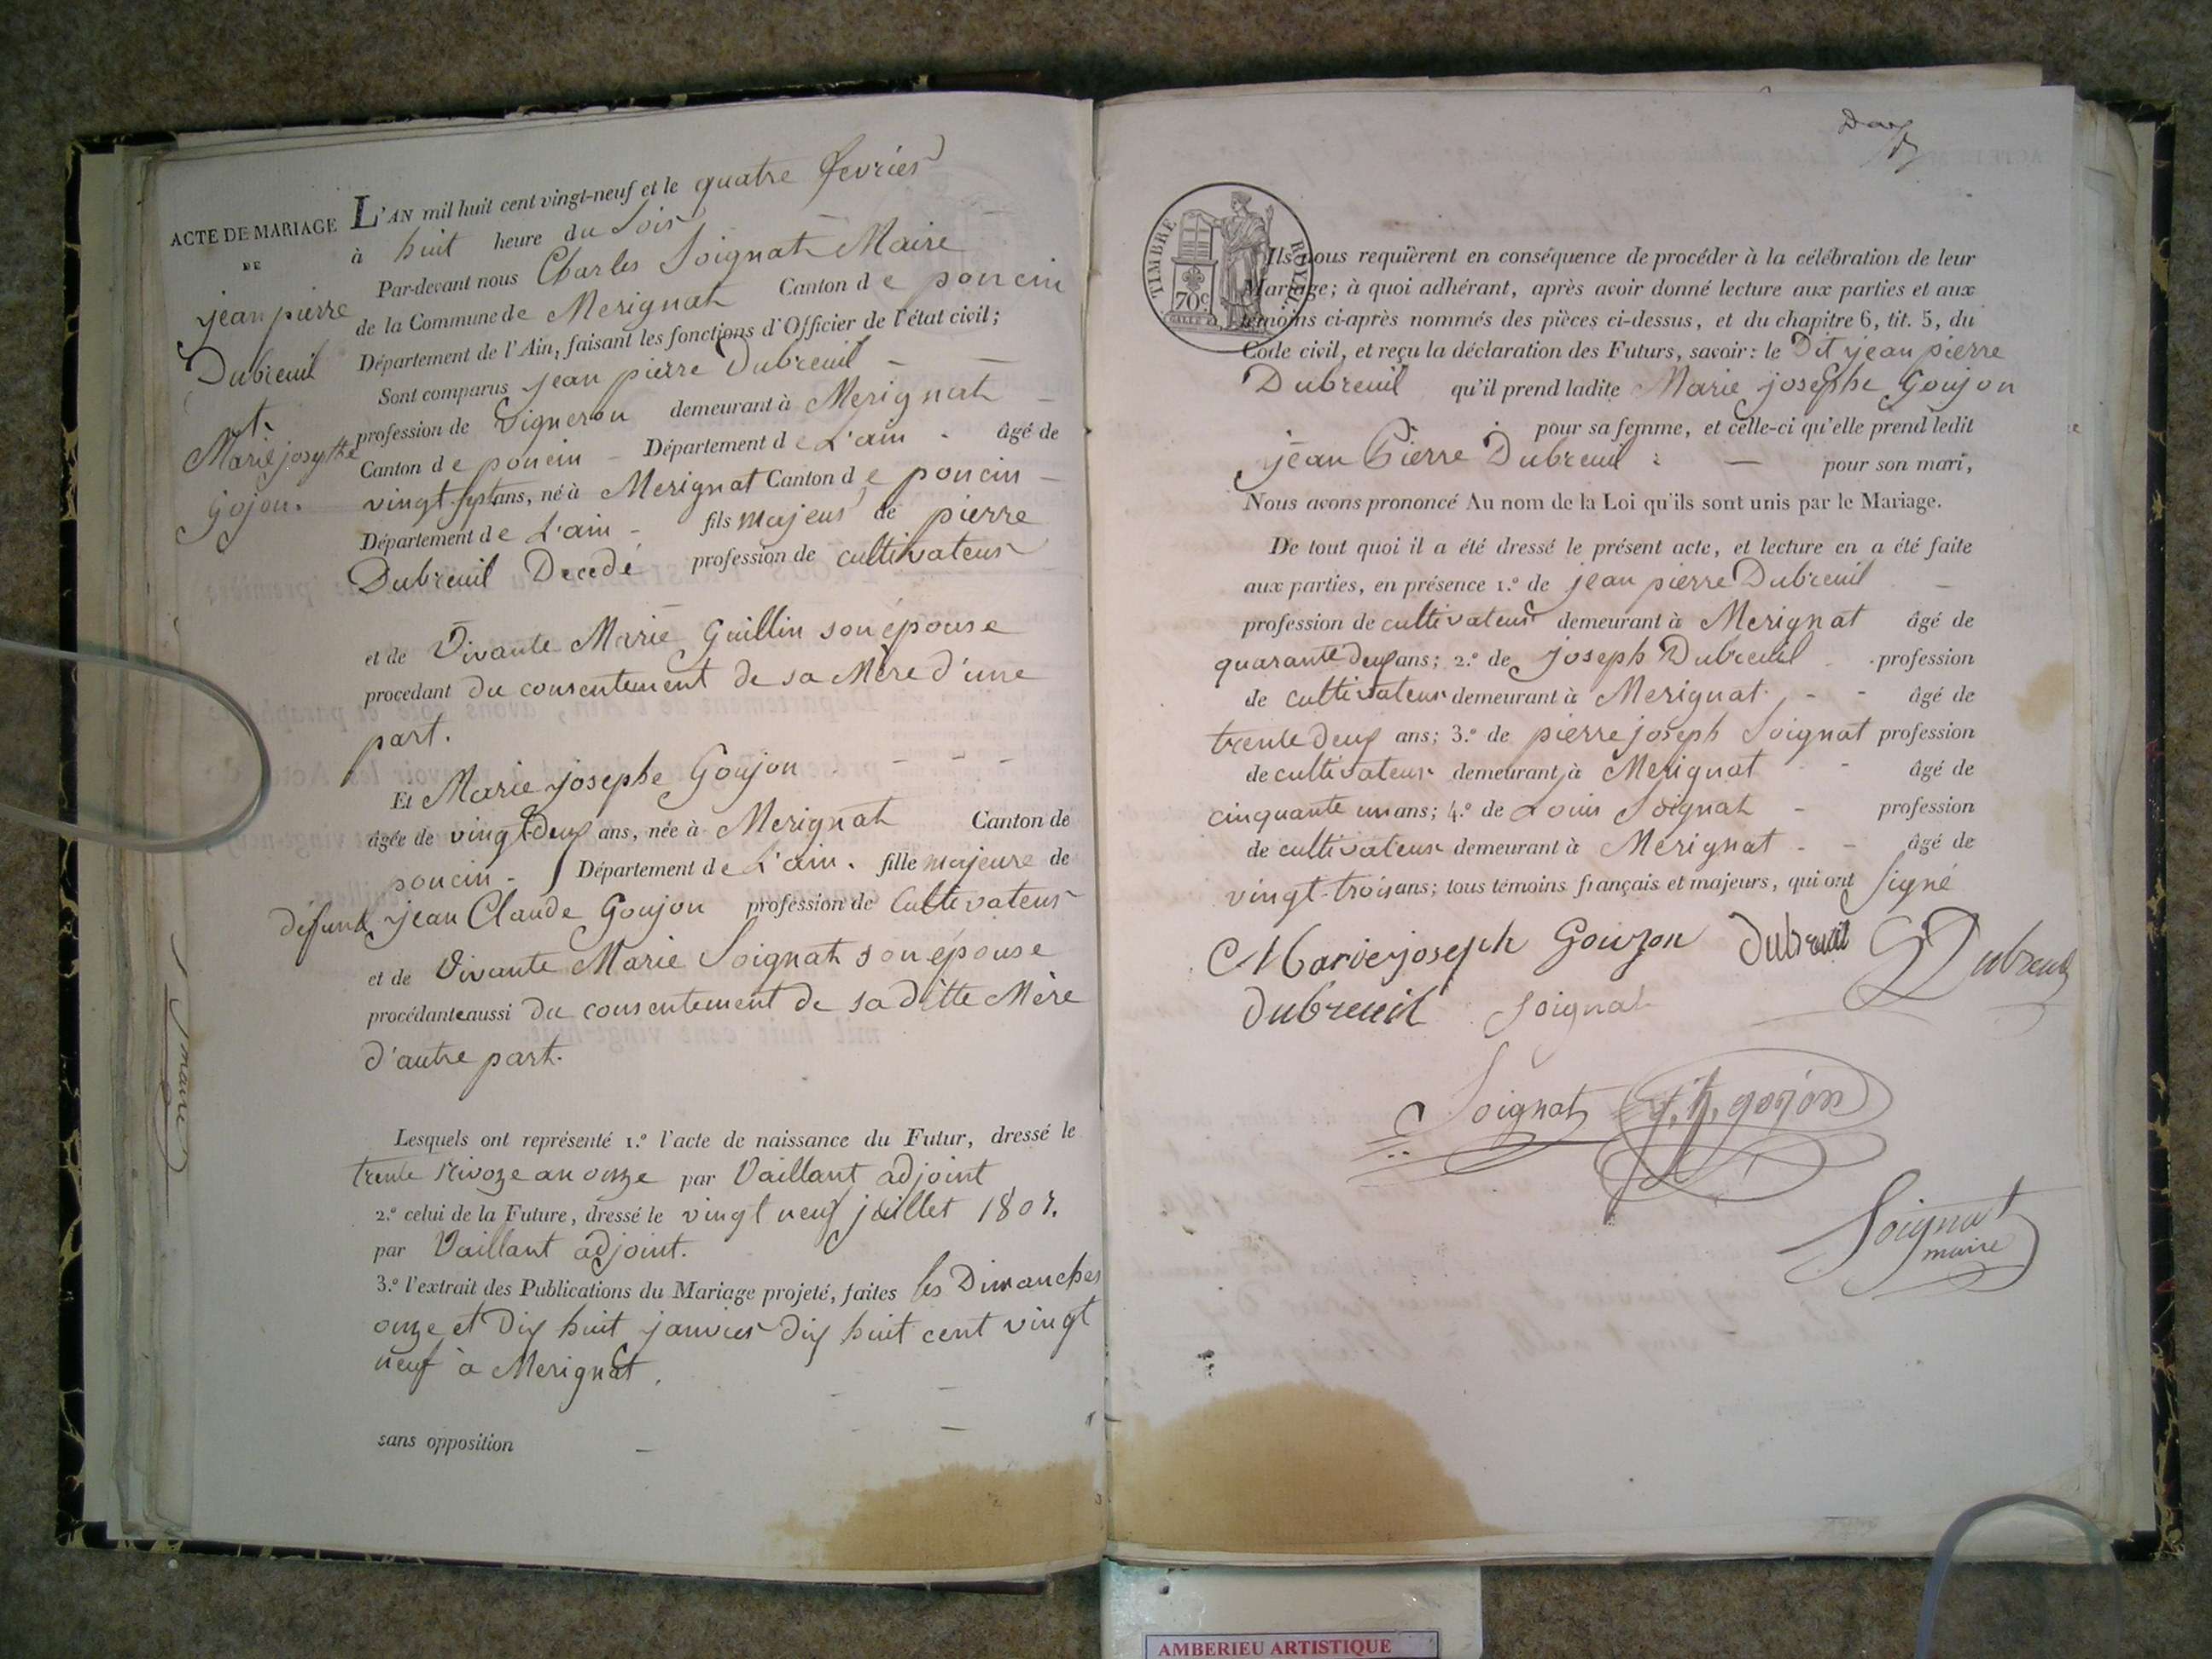 ACTE DE MARIAGE
DE
jean pierre
Dubreuil
et
Marie josephe
Gojon.
L'AN mil huit cent vingt-neuf et le quatre fevrier
à huit heure du Soir
Par-devant nous Charles Soignat Maire
de la Commune de Merignat Canton de poncin
Département de l'Ain, faisant les fonctions d'Officier de l'état civil;
Sont comparus jean pierre Dubreuil
profession de Vigneron demeurant à Merignat
Canton de poncin Département de L'ain âgé de
vingt-sept ans, né à Merignat Canton de poncin
Département de L'ain fils majeur de pierre
Dubreuil Decedé profession de cultivateur
et de Vivante Marie Guillin son épouse
procedant du consentement de sa Mère d'une
part.
Et Marie josephe Goujon
âgée de vingt-deux ans, née à Merignat Canton de
poncin Département de L'ain. fille majeure de
défunt jean Claude Goujon profession de Cultivateur
et de Vivante Marie Soignat son épouse
procédante aussi du consentement de sa ditte Mère
d'autre part.
Lesquels ont représenté 1.º l'acte de naissance du Futur, dressé le
trente Nivoze an onze par Vaillant adjoint
2.º celui de la Future, dressé le vingt neuf juillet 1807.
par Vaillant adjoint.
3.º l'extrait des Publications du Mariage projeté, faites les Dimanches
onze et Dix huit janvier dix huit cent vingt
neuf à Merignat.
sans opposition
TIMBRE ROYAL
70c
Ils nous requièrent en conséquence de procéder à la célébration de leur
Mariage; à quoi adhérant, après avoir donné lecture aux parties et aux
témoins ci-après nommés des pièces ci-dessus, et du chapitre 6, tit. 5, du
Code civil, et reçu la déclaration des Futurs, savoir: le Dit jean pierre
Dubreuil qu'il prend ladite Marie josephe Goujon
pour sa femme, et celle-ci qu'elle prend ledit
jean Pierre Dubreuil pour son mari,
Nous avons prononcé Au nom de la Loi qu'ils sont unis par le Mariage.
De tout quoi il a été dressé le présent acte, et lecture en a été faite
aux parties, en présence 1.º de jean pierre Dubreuil
profession de cultivateur demeurant à Merignat âgé de
quarante deux ans; 2.º de joseph Dubreuil profession
de cultivateur demeurant à Merignat âgé de
trente deux ans; 3.º de pierre joseph Soignat profession
de cultivateur demeurant à Merignat âgé de
cinquante un ans; 4.º de Louis Soignat profession
de cultivateur demeurant à Merignat âgé de
vingt-trois ans; tous témoins français et majeurs, qui ont signé
Marie joseph Goujon Dubreuil Dubreuil
Dubreuil Soignat
Soignat gojon
Soignat
maire
AMBERIEU ARTISTIQUE